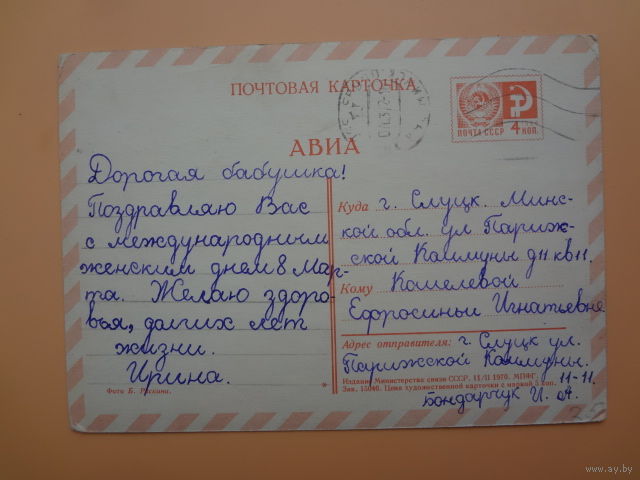 ПОЧТОВАЯ КАРТОЧКА
АВИА
ПОЧТА СССР 4 КОП.
Дорогая бабушка!
Поздравляю Вас
с международным
женским днем 8 Мар-
та. Желаю здоро-
вья, долгих лет
жизни.
Ирина.
Фото Б. Раскина.
Куда г. Слуцк. Минс-
кой обл. ул Париж-
ской Коммуны д11 кв11.
Кому Комелевой
Ефросиньи Игнатьевне
Адрес отправителя: г. Слуцк ул.
Парижской Коммуны.
11-11.
Издание Министерства связи СССР. 11/II 1970. МПФГ.
Зак. 15040. Цена художественной карточки с маркой 5 коп.
Бондарчук И. А.
25
www.ay.by